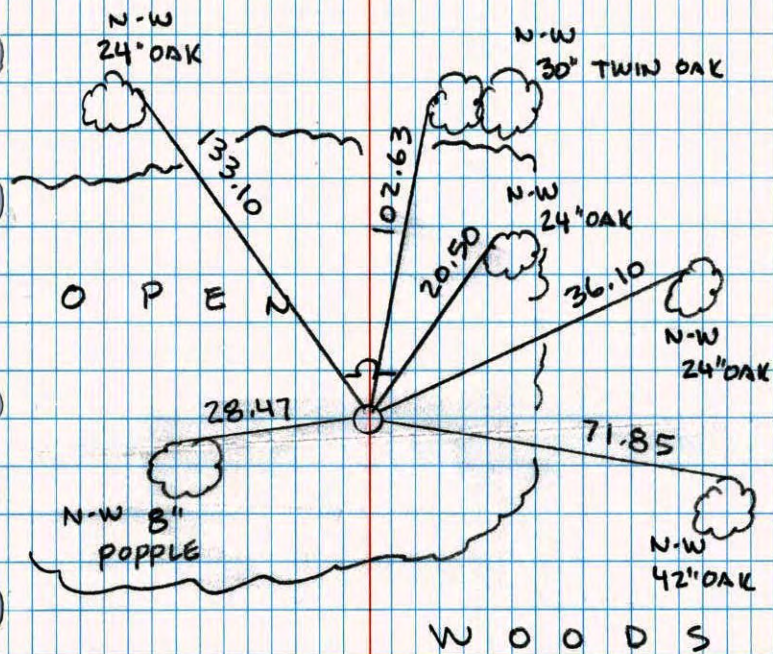 N-W
24" OAK
N-W
30" TWIN OAK
133.10
102.63
N-W
24" OAK
20.50
36.10
OPEN
N-W
24" OAK
28.47
71.85
N-W 8"
POPPLE
N-W
42" OAK
WOODS